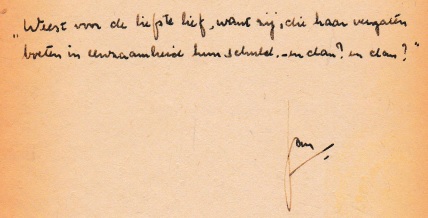 „Weest voor de liefste lief, want zij, die haar vergaten
boeten in eenzaamheid hun schuld. - en dan? en dan?"
Jan.